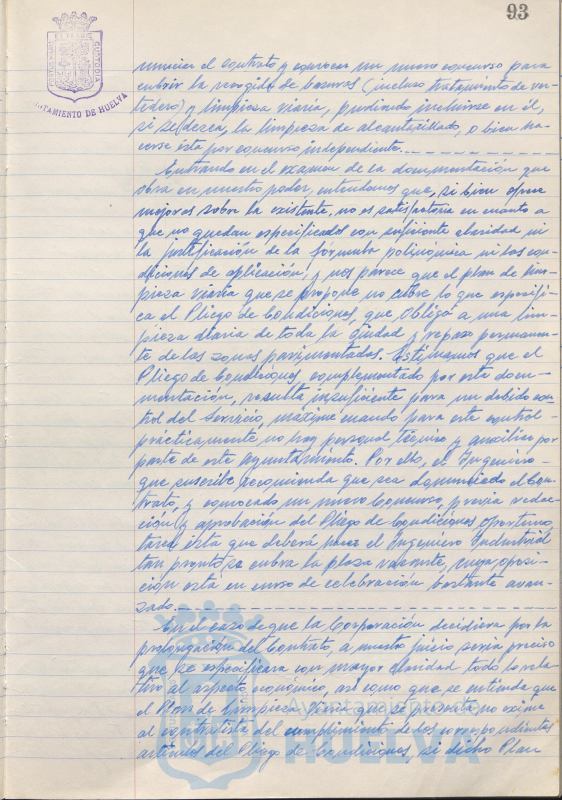 93
CUSTODIA
AYUNTAMIENTO DE HUELVA
nunciar el contrato y convocar un nuevo concurso para
cubrir la recogida de basuras (incluso tratamiento de ver-
tedero) y limpieza viaria, pudiendo incluirse en él,
si se desea, la limpieza de alcantarillado, o bien ha-
cerse ésta por concurso independiente.
Entrando en el examen de la documentación que
obra en nuestro poder, entendemos que, si bien ofrece
mejoras sobre la existente, no es satisfactoria en cuanto a
que no quedan especificados con suficiente claridad ni
la justificación de la fórmula polinómica ni las con-
diciones de aplicación, y nos parece que el plan de lim-
pieza viaria que se propone no cubre lo que especifi-
ca el Pliego de Condiciones, que obliga a una lim-
pieza diaria de toda la Ciudad y repaso permanen-
te de las zonas pavimentadas. Estimamos que el
Pliego de Condiciones, complementado por esta docu-
mentación, resulta insuficiente para un debido con-
trol del Servicio, máxime cuando para este control-
prácticamente, no hay personal técnico y auxiliar por
parte de este Ayuntamiento. Por ello, el Ingeniero-
que suscribe, recomienda que sea denunciado el Con-
trato, y convocado un nuevo Concurso, previa redac-
ción y aprobación del Pliego de Condiciones oportuno,
tarea ésta que deberá hacer el Ingeniero Industrial
tan pronto se cubra la plaza vacante, cuya oposi-
ción está en curso de celebración bastante avan-
zado.
En el caso de que la Corporación decidiera por la
prolongación del Contrato, a nuestro juicio sería preciso
que se especificara con mayor claridad todo lo rela-
tivo al aspecto económico, así como que se entienda que
el Plan de Limpieza Viaria que se presenta no exime
al contratista del cumplimiento de los correspondientes
artículos del Pliego de Condiciones, si dicho Plan
Ayuntamiento de
HUELVA